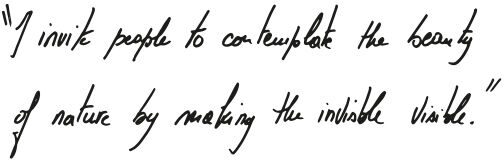 "I invite people to contemplate the beauty
of nature by making the invisible visible."